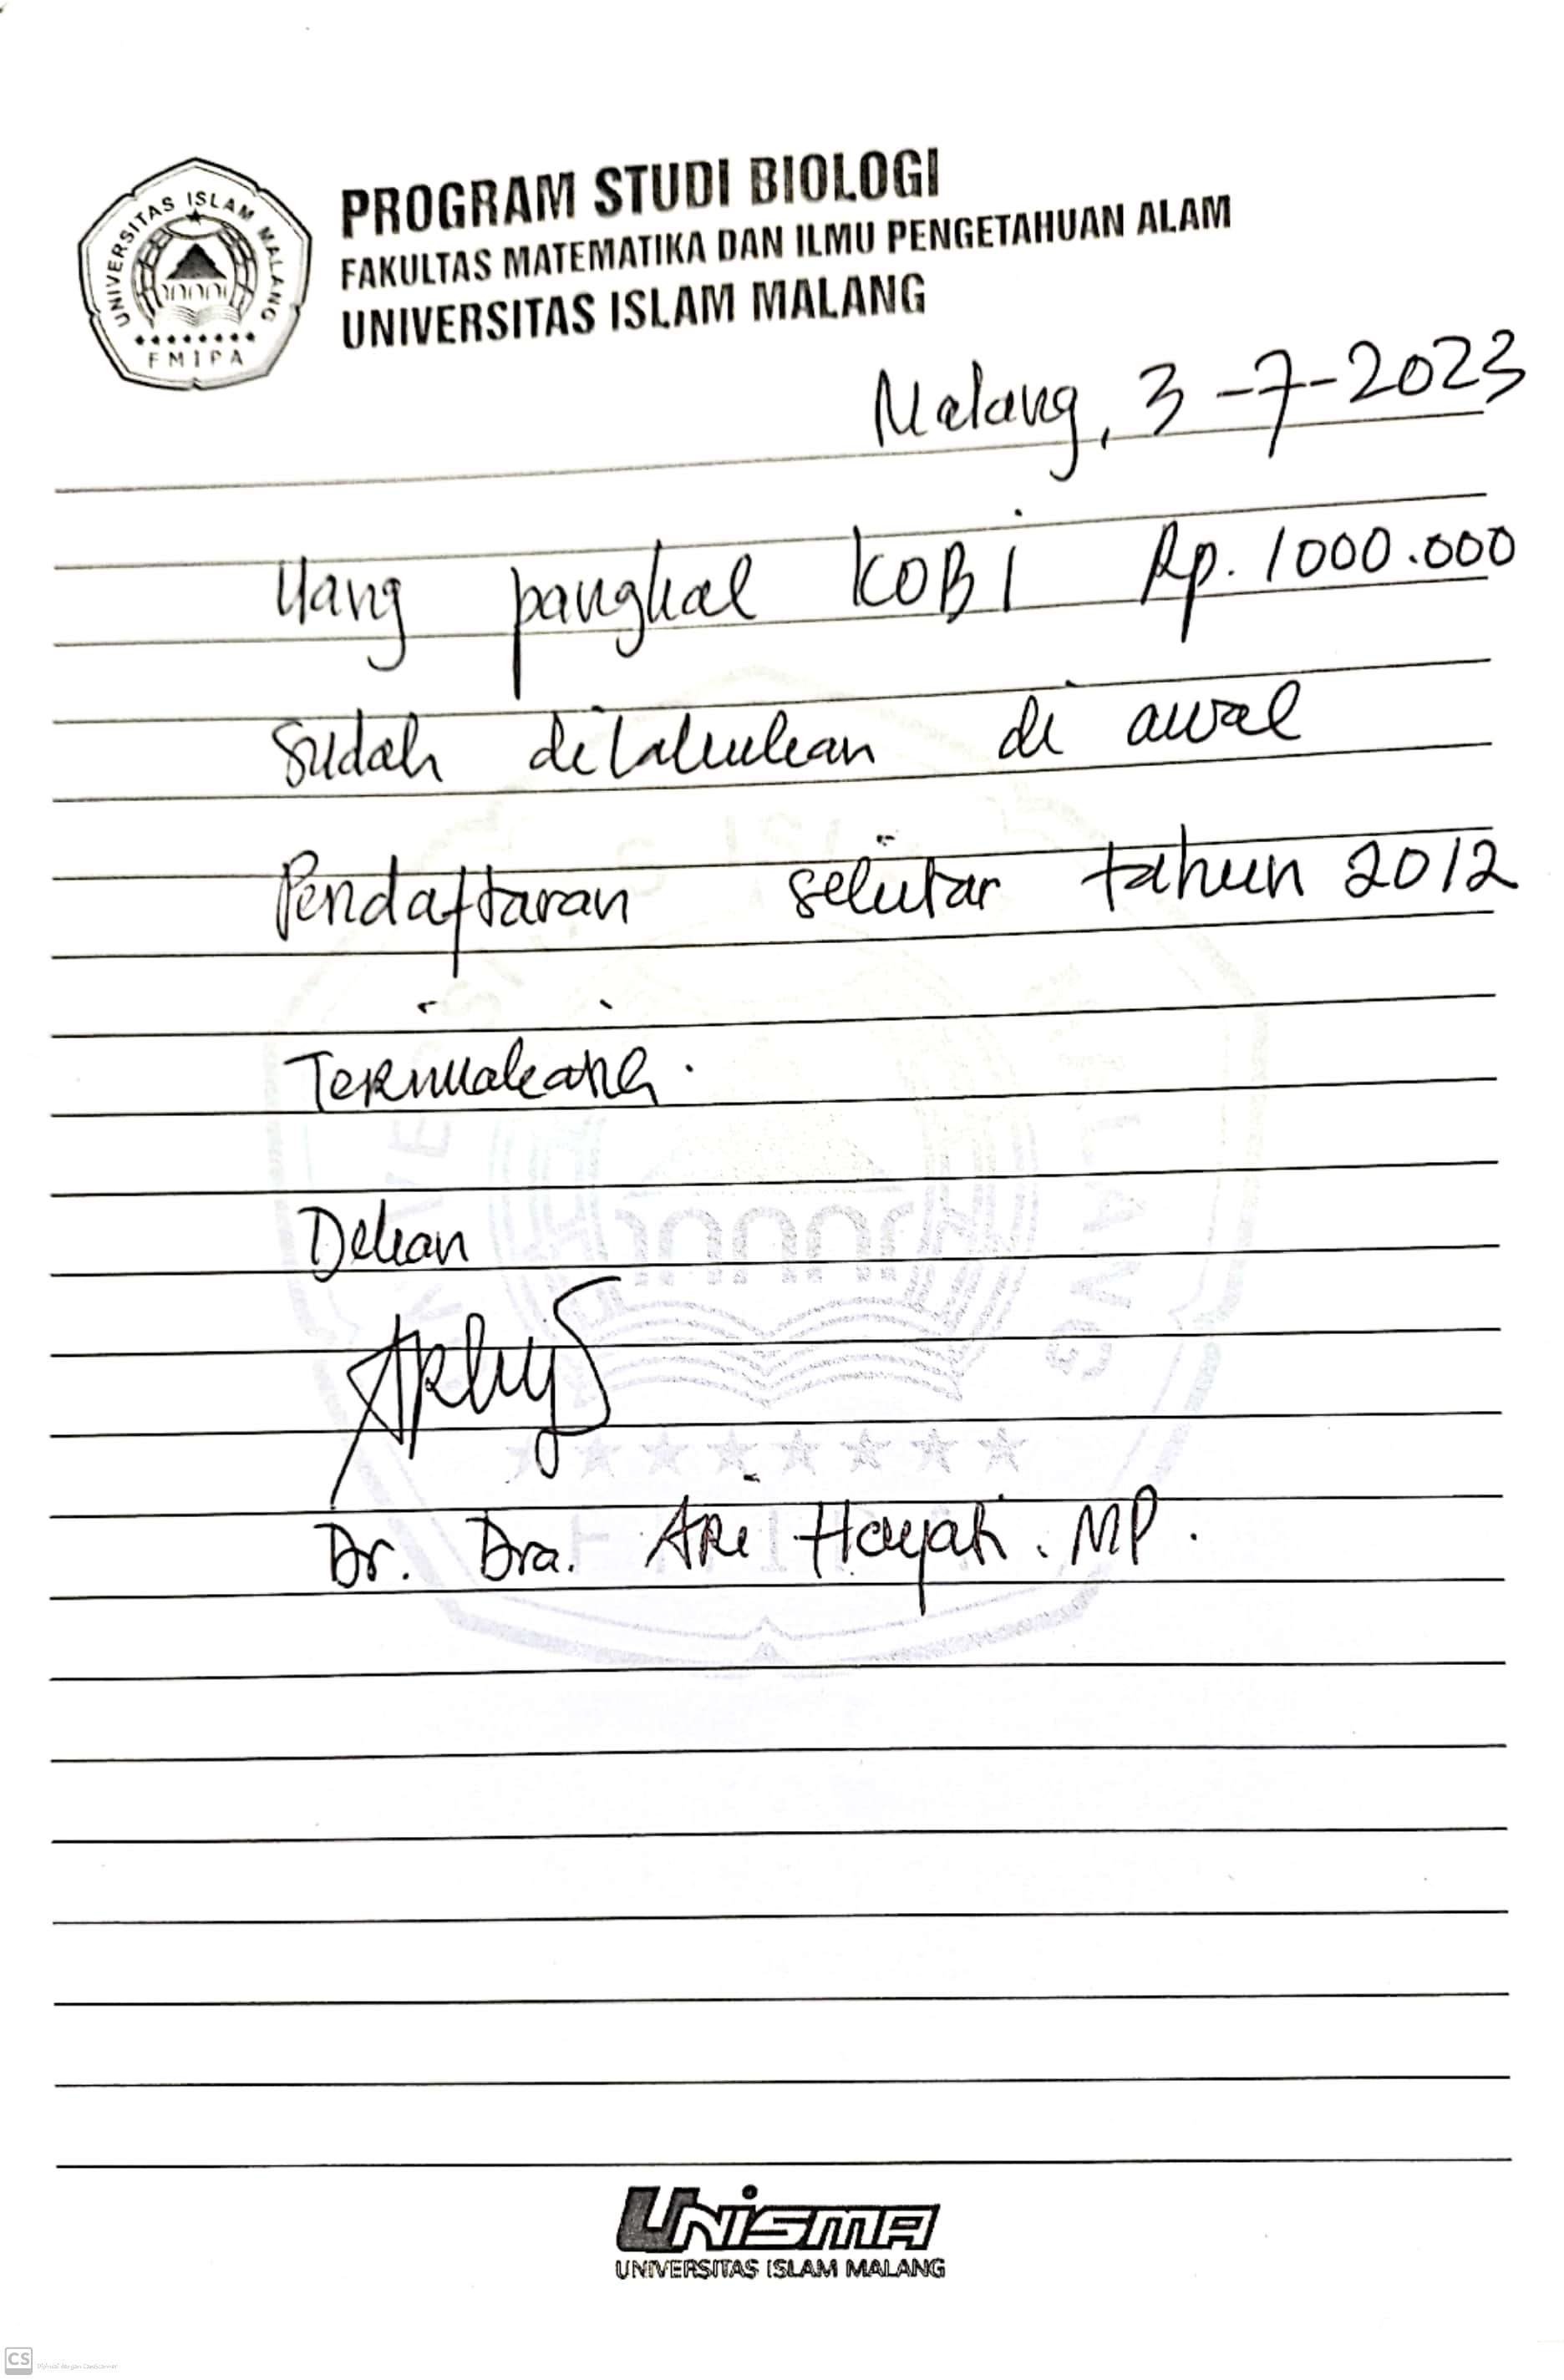 UNIVERSITAS ISLAM MALANG
FMIPA
PROGRAM STUDI BIOLOGI
FAKULTAS MATEMATIKA DAN ILMU PENGETAHUAN ALAM
UNIVERSITAS ISLAM MALANG
Malang, 3-7-2023
Uang pangkal KOBI Rp. 1000.000
Sudah dilakukan di awal
Pendaftaran sekitar tahun 2012
Terimakasih.
Dekan
Dr. Dra. Ari Hayati. MP.
UNISMA
UNIVERSITAS ISLAM MALANG
CS